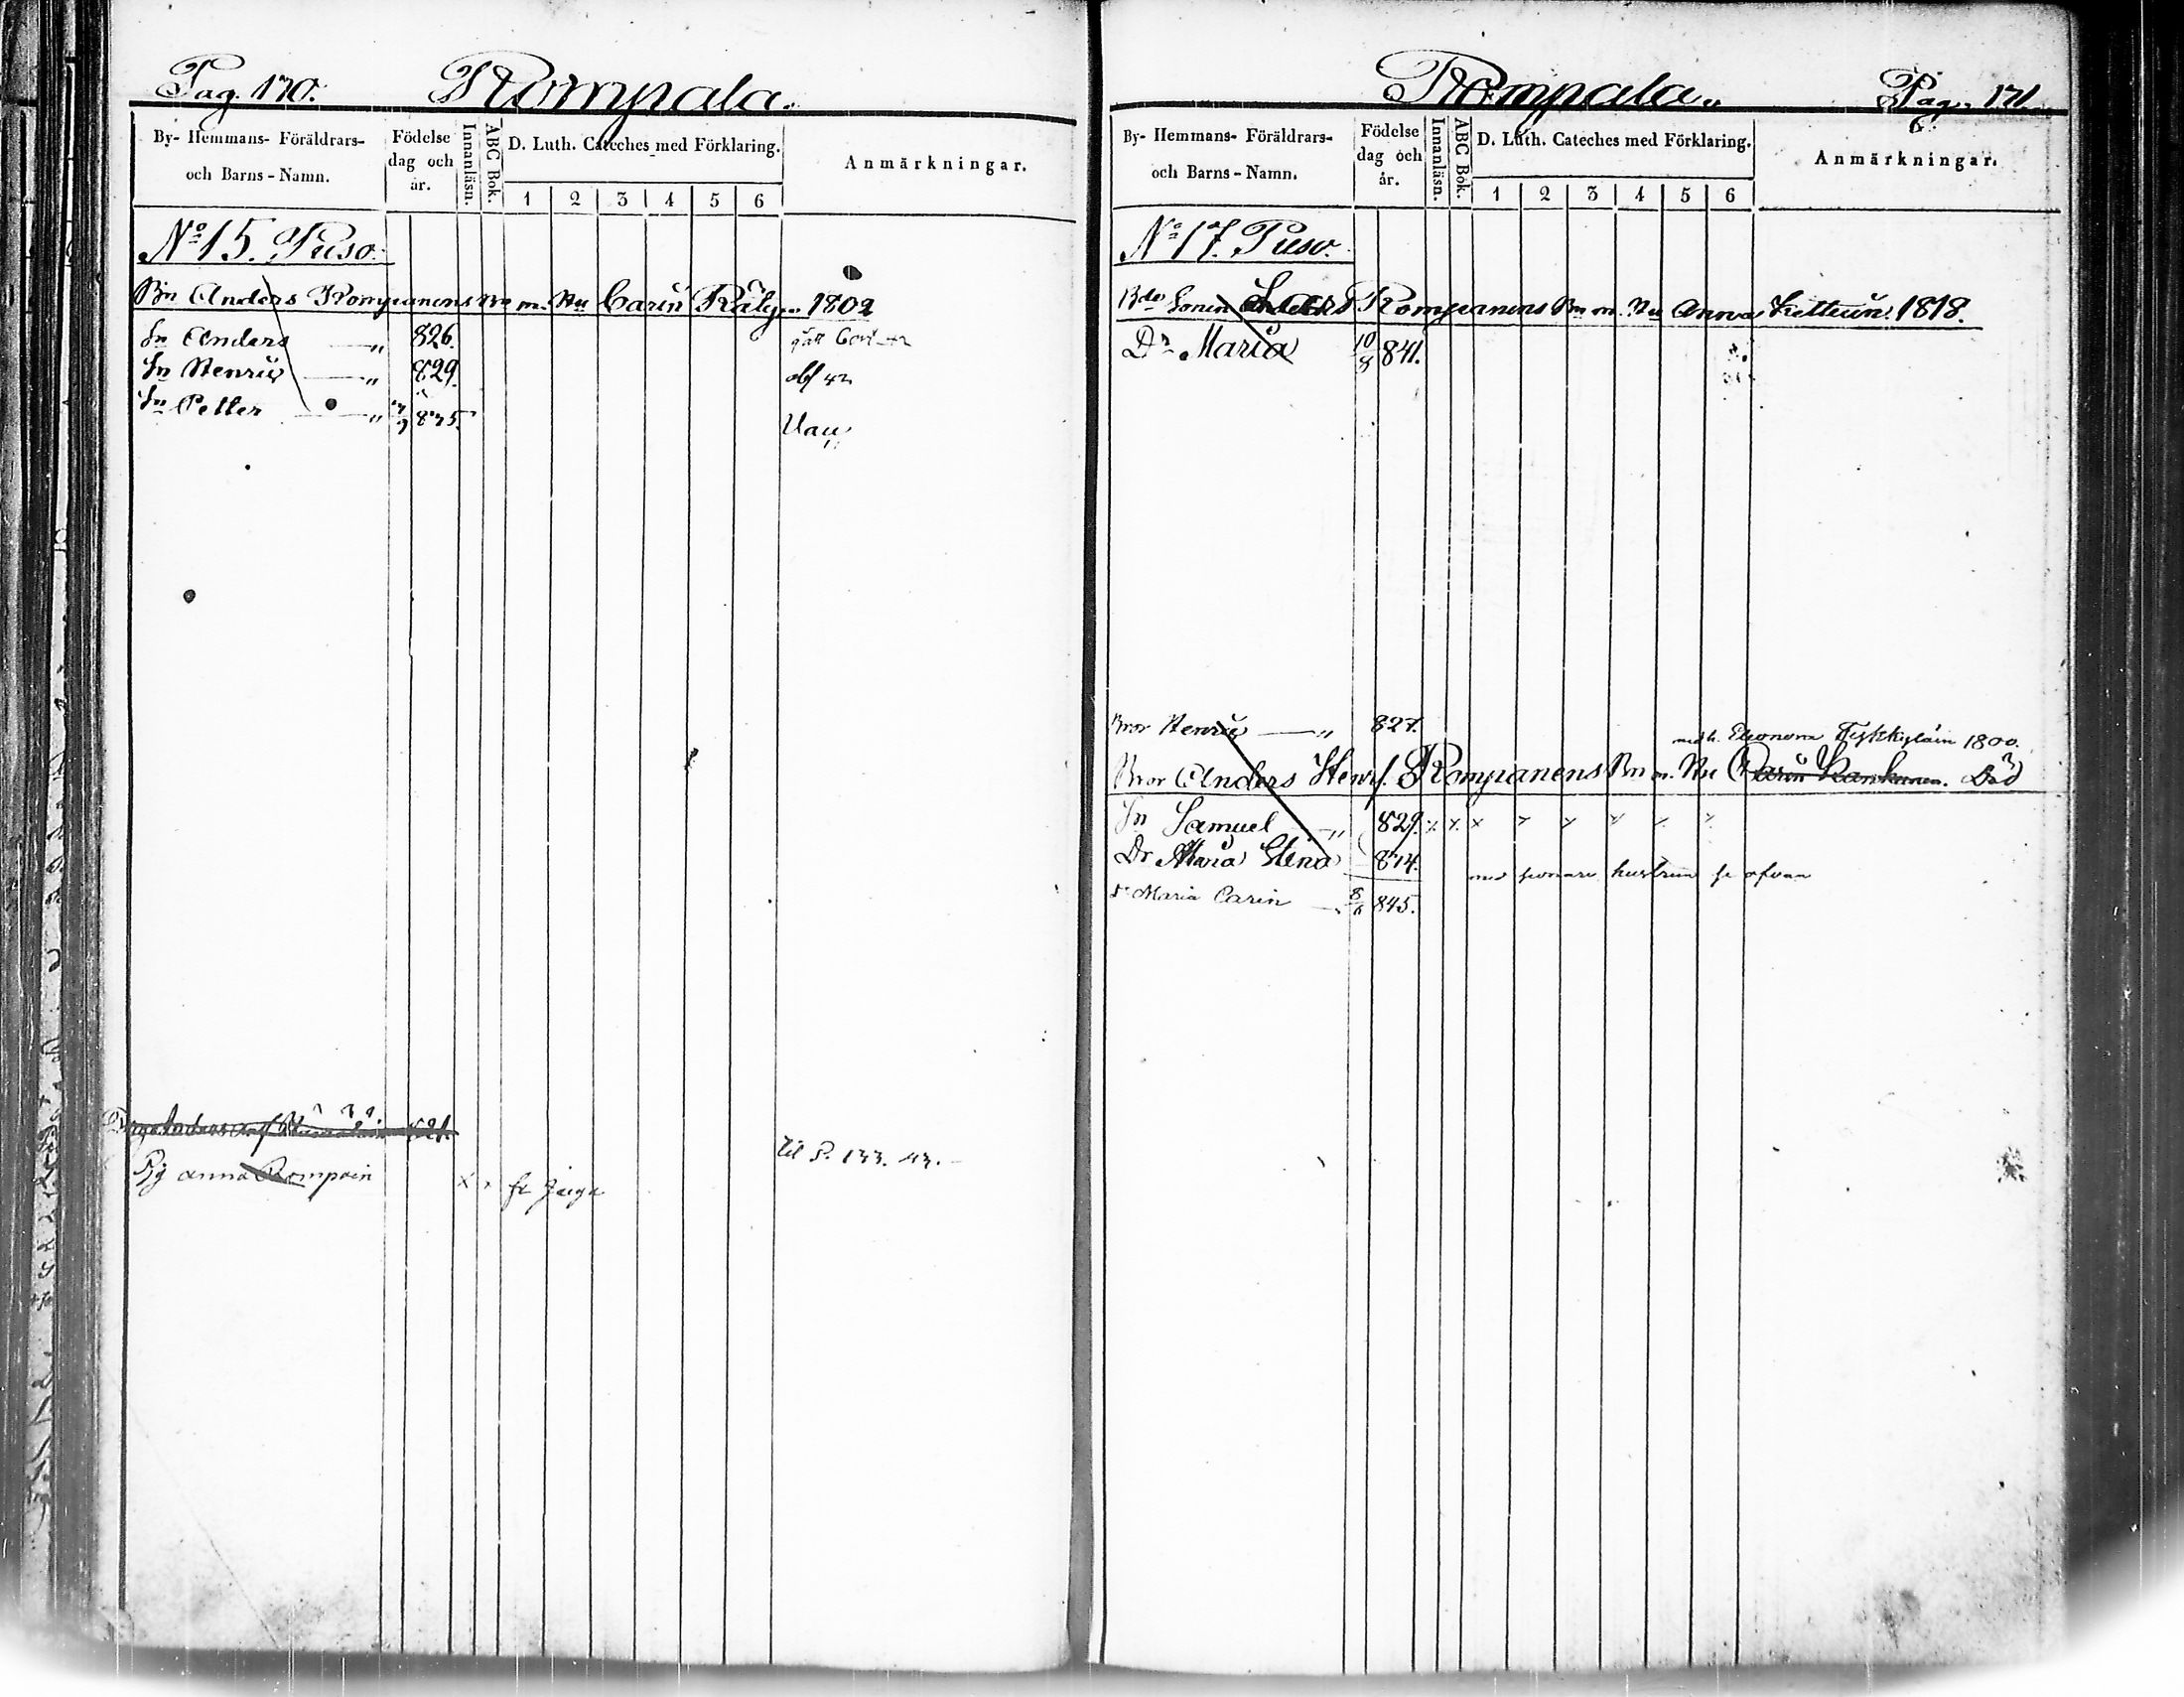 Pag. 170. Rompala.
By- Hemmans- Föräldrars- och Barns-Namn.
Födelse dag och år.
Innanläsn.
ABC Bok.
D. Luth. Cateches med Förklaring.
1 2 3 4 5 6
Anmärkningar.
No 15. Puso.
Bn Anders Rompanens Bn m. Hu Carin Räty 1802
Sn Anders — " 826.
Sn Henric — " 829. obf 42
Sn Petter — " 835.
Pig anna Rompain x x fr til P. 133. 43.
Rompala. Pag. 171
By- Hemmans- Föräldrars- och Barns-Namn.
Födelse dag och år.
Innanläsn.
ABC Bok.
D. Luth. Cateches med Förklaring.
1 2 3 4 5 6
Anmärkningar.
No 17. Puso.
Bde Sonen Lars Rompanens Bn m. Hu Anna 1818.
Dr Maria 10/8 841.
Bror Henric — " 827.
med h. Eleonora 1800.
Bror Anders Henrs. Rompanens Bn m. Hu Carin Död
Sn Samuel — " 829. x x x x x x x x
Dr Maria Stina 834.
med senare hustrun se ofvan
Dr Maria Carin — 8/6 845.